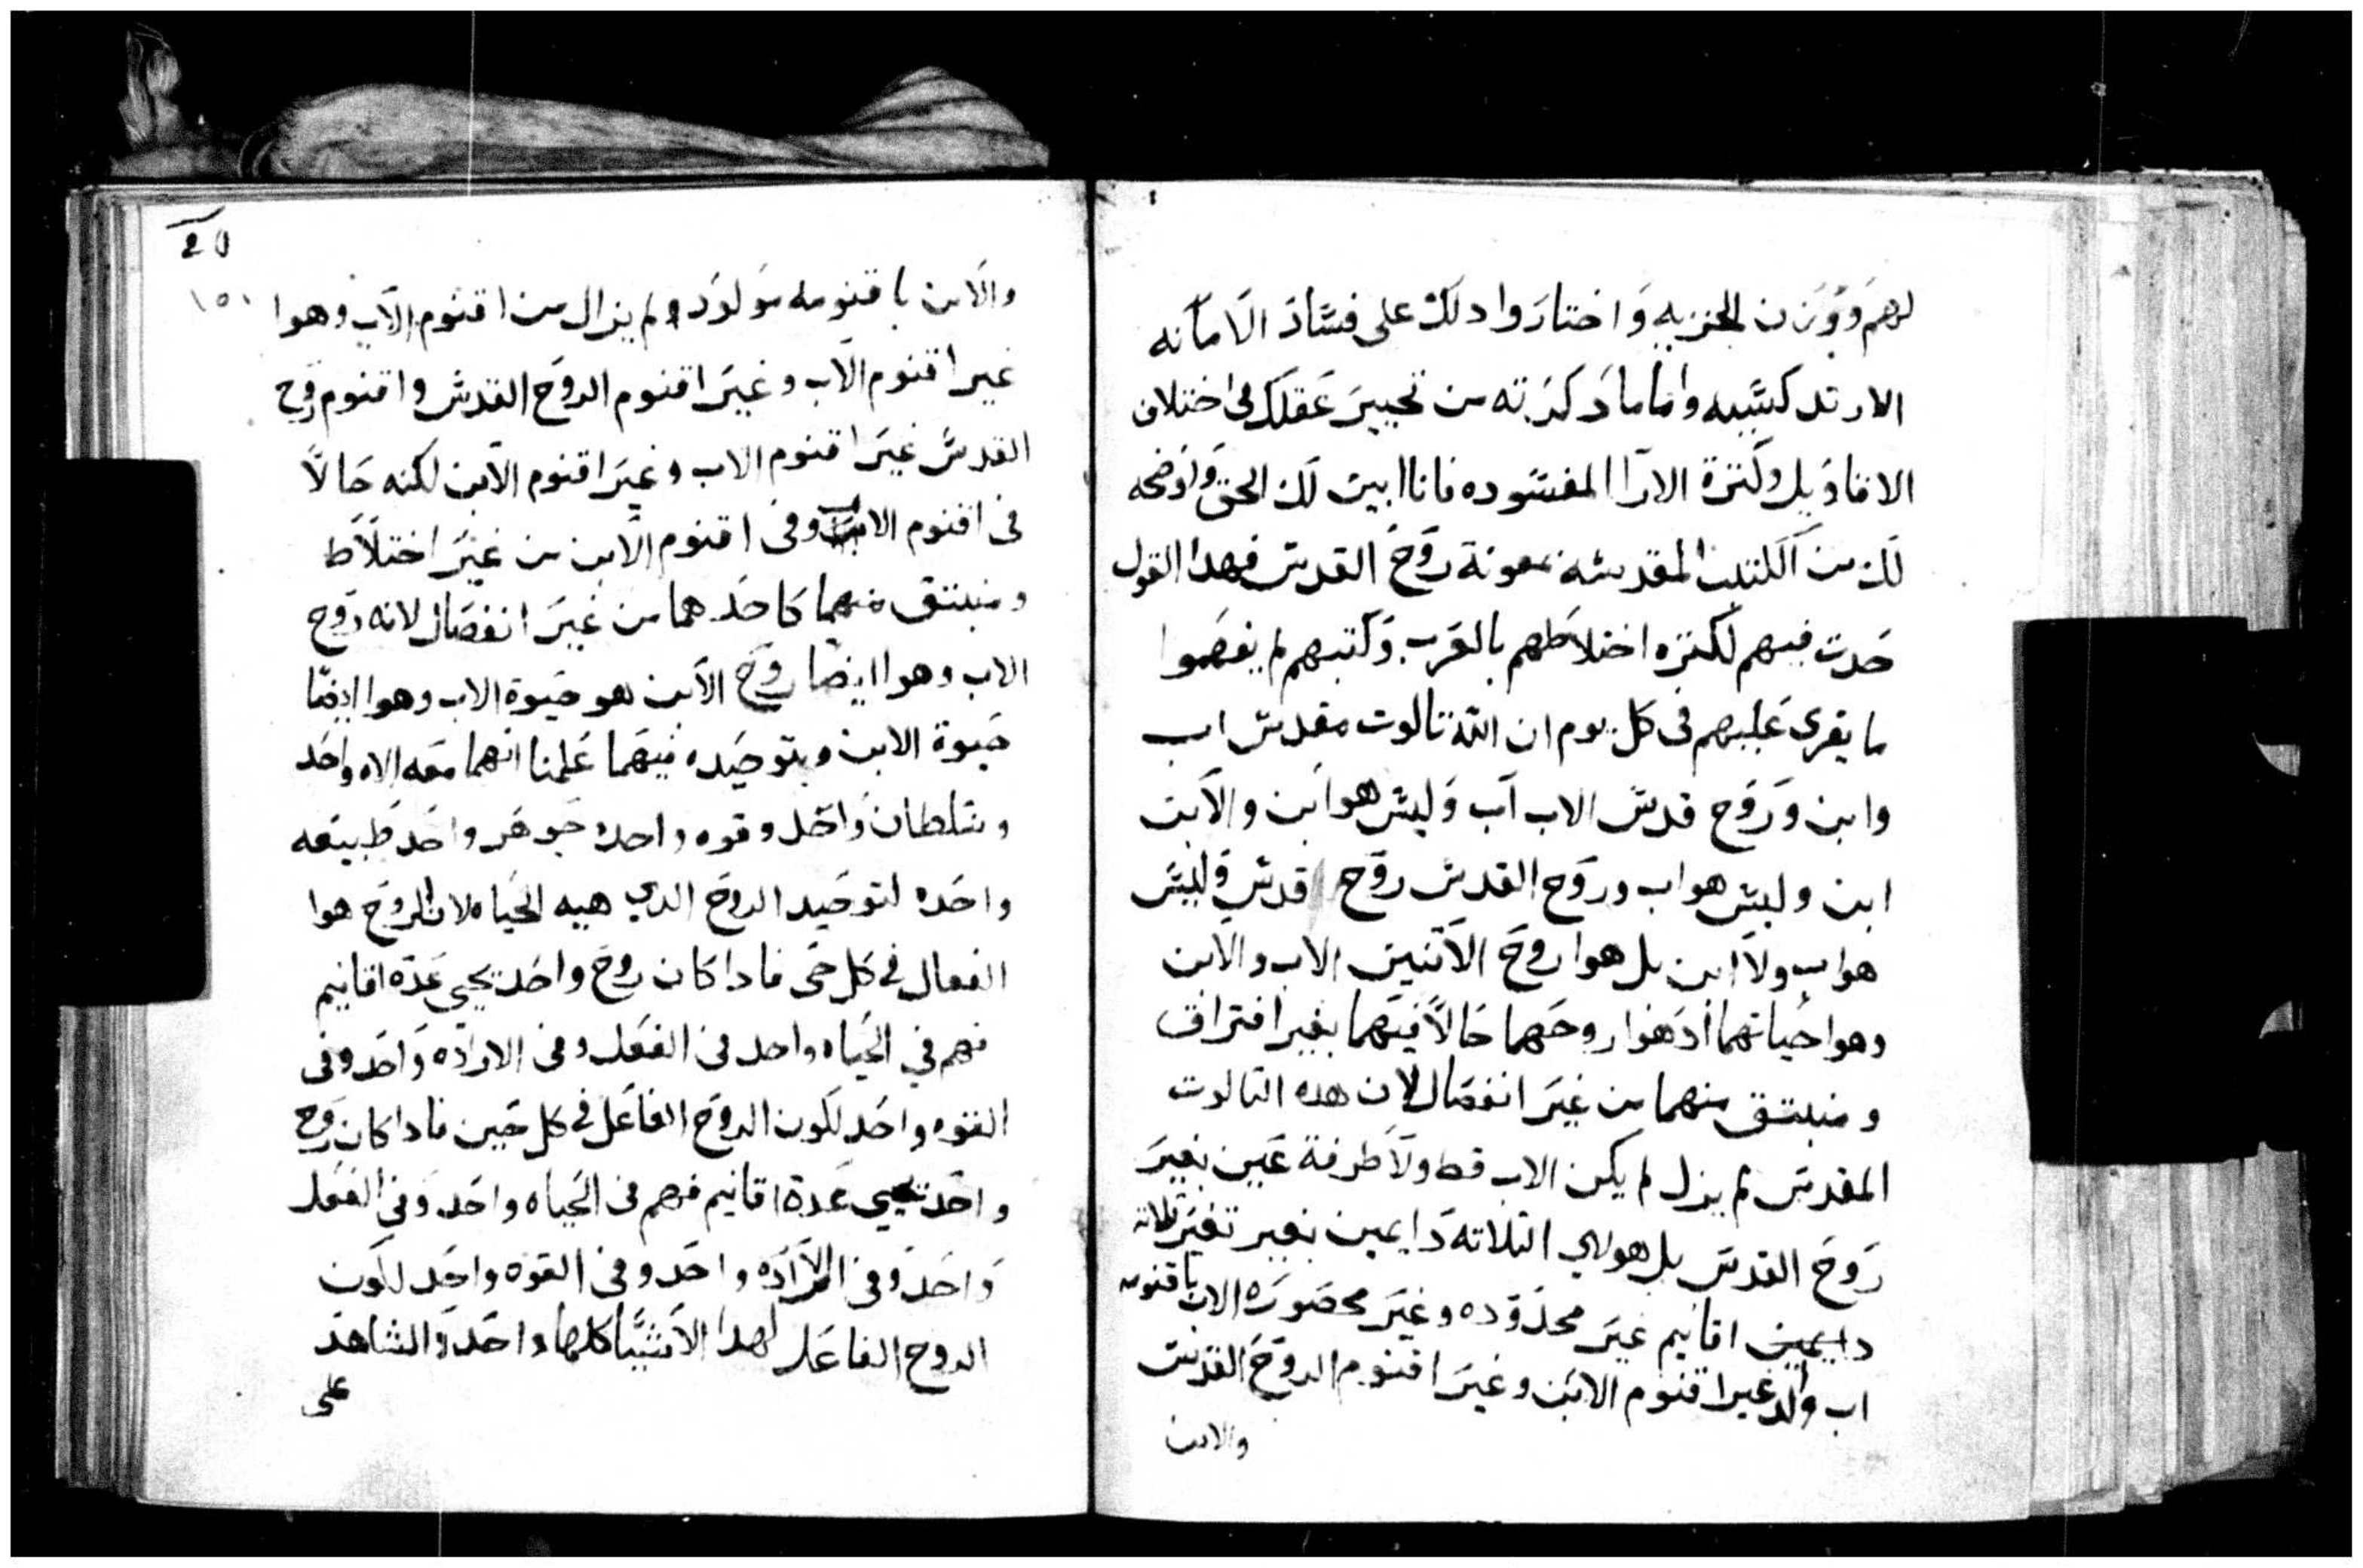 لهم ووزن الجزيه واختاروا دلك على فساد الامانه
الارتدكسيه واما مادكرته من تحيير عقلك فى اختلاف
الاقاويل وكترة الارا المفسوده فانا ابين لك الحق واوضحه
لك من الكتب المقدسه بمعونة روح القدس فهدا القول
حدت فيهم لكتره اختلاطهم بالغرب وكتبهم لم يفهموا
ما يقرى عليهم فى كل يوم ان الله تالوت مقدس اب
وابن وروح قدس الاب اب وليس هوا ابن والابن
ابن وليس هو اب وروح القدس روح قدس وليس
هو اب ولا ابن بل هوا روح الاتنين الاب والابن
وهوا حياتهما اد هوا روحهما حالا فيهما بغير افتراق
ومنبتق منهما من غير انفصال لان هده التالوت
المقدس لم يزل لم يكن الاب قط ولا طرفة عين بغير
روح القدس بل هولاي التلاته دايمين بغير تغير تلاته
دايمين اقانيم غير محدوده وغير محصوره الاب باقنومه
اب والد غير اقنوم الابن وغير اقنوم الروح القدس
والابن
20
١٥١
والابن باقنومه مولود ولم يزال من اقنوم الاب وهوا
غير اقنوم الاب وغير اقنوم الروح القدس واقنوم روح
القدس غير اقنوم الاب وغير اقنوم الابن لكنه حالا
فى اقنوم الاب وفى اقنوم الابن من غير اختلاط
ومنبتق منهما كاحدهما من غير انفصال لانه روح
الاب وهوا ايضا روح الابن هو حيوة الاب وهوا ايضا
حيوة الابن وبتوحيده فيهما علمنا انهما معه الاه واحد
وسلطان واحد وقوه واحده جوهر واحد طبيعه
واحده لتوحيد الروح الدي هيه الحياه لان الروح هوا
الفعال فى كل حى فادا كان روح واحد يحيى عدة اقانيم
فهم في الحياه واحد فى الفعل وفى الاراده واحد وفى
القوه واحد لكون الروح الفاعل فى كل حين فادا كان روح
واحد يحيى عدة اقانيم فهم فى الحياه واحد وفي الفعل
واحد وفى الاراده واحد وفى القوه واحد لكون
الروح الفاعل لهدا الاشيا كلها واحد والشاهد
على